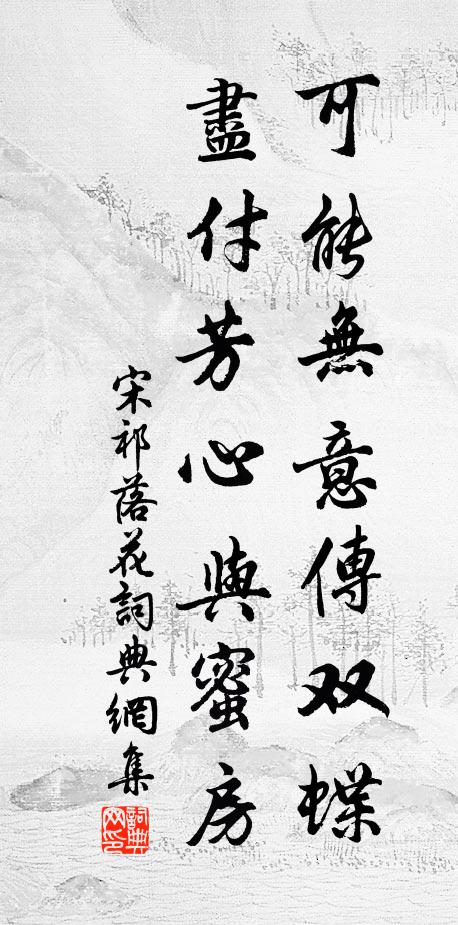 可能無意傳双蝶
盡付芳心與蜜房
宋祁落花詞典網集
詞典网印